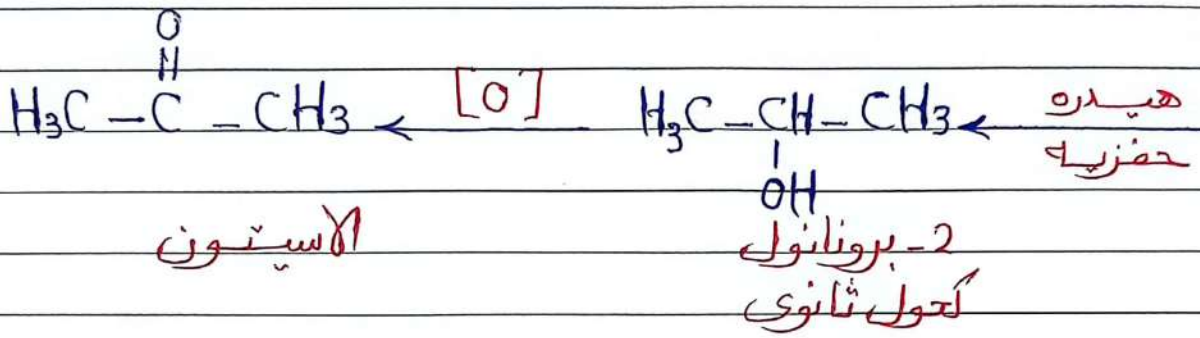 O
||
H3C – C – CH3 ← [O] H3C – CH – CH3 ← هيدره حفزيه
|
OH
الاسيتون 2 - بروبانول
كحول ثانوى